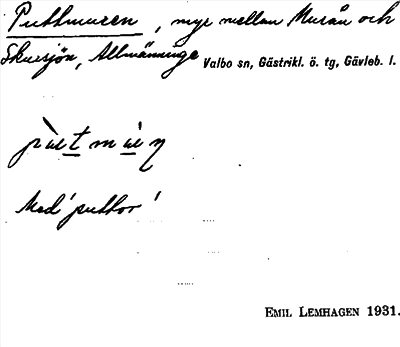 Puttmuren, myr mellan Murån och
Skarsjön, Allmänninge Valbo sn, Gästrikl. ö. tg, Gävleb. l.
Med 'puttor'
EMIL LEMHAGEN 1931.